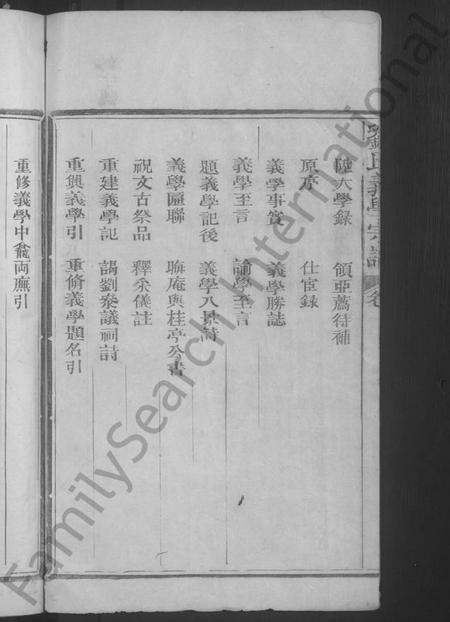 陞大學錄　領亞薦待補
原序　仕宦錄
義學事實　義學勝誌
義學至言　諭學至言
題義學記後　義學八景詩
義學匾聯　晦庵與桂亭公書
祝文古祭品　釋采儀註
重建義學記　謁劉泰議祠詩
重興義學引　重脩義學題名引
重修義學中龕両廡引
義學宗譜 卷
FamilySearch International